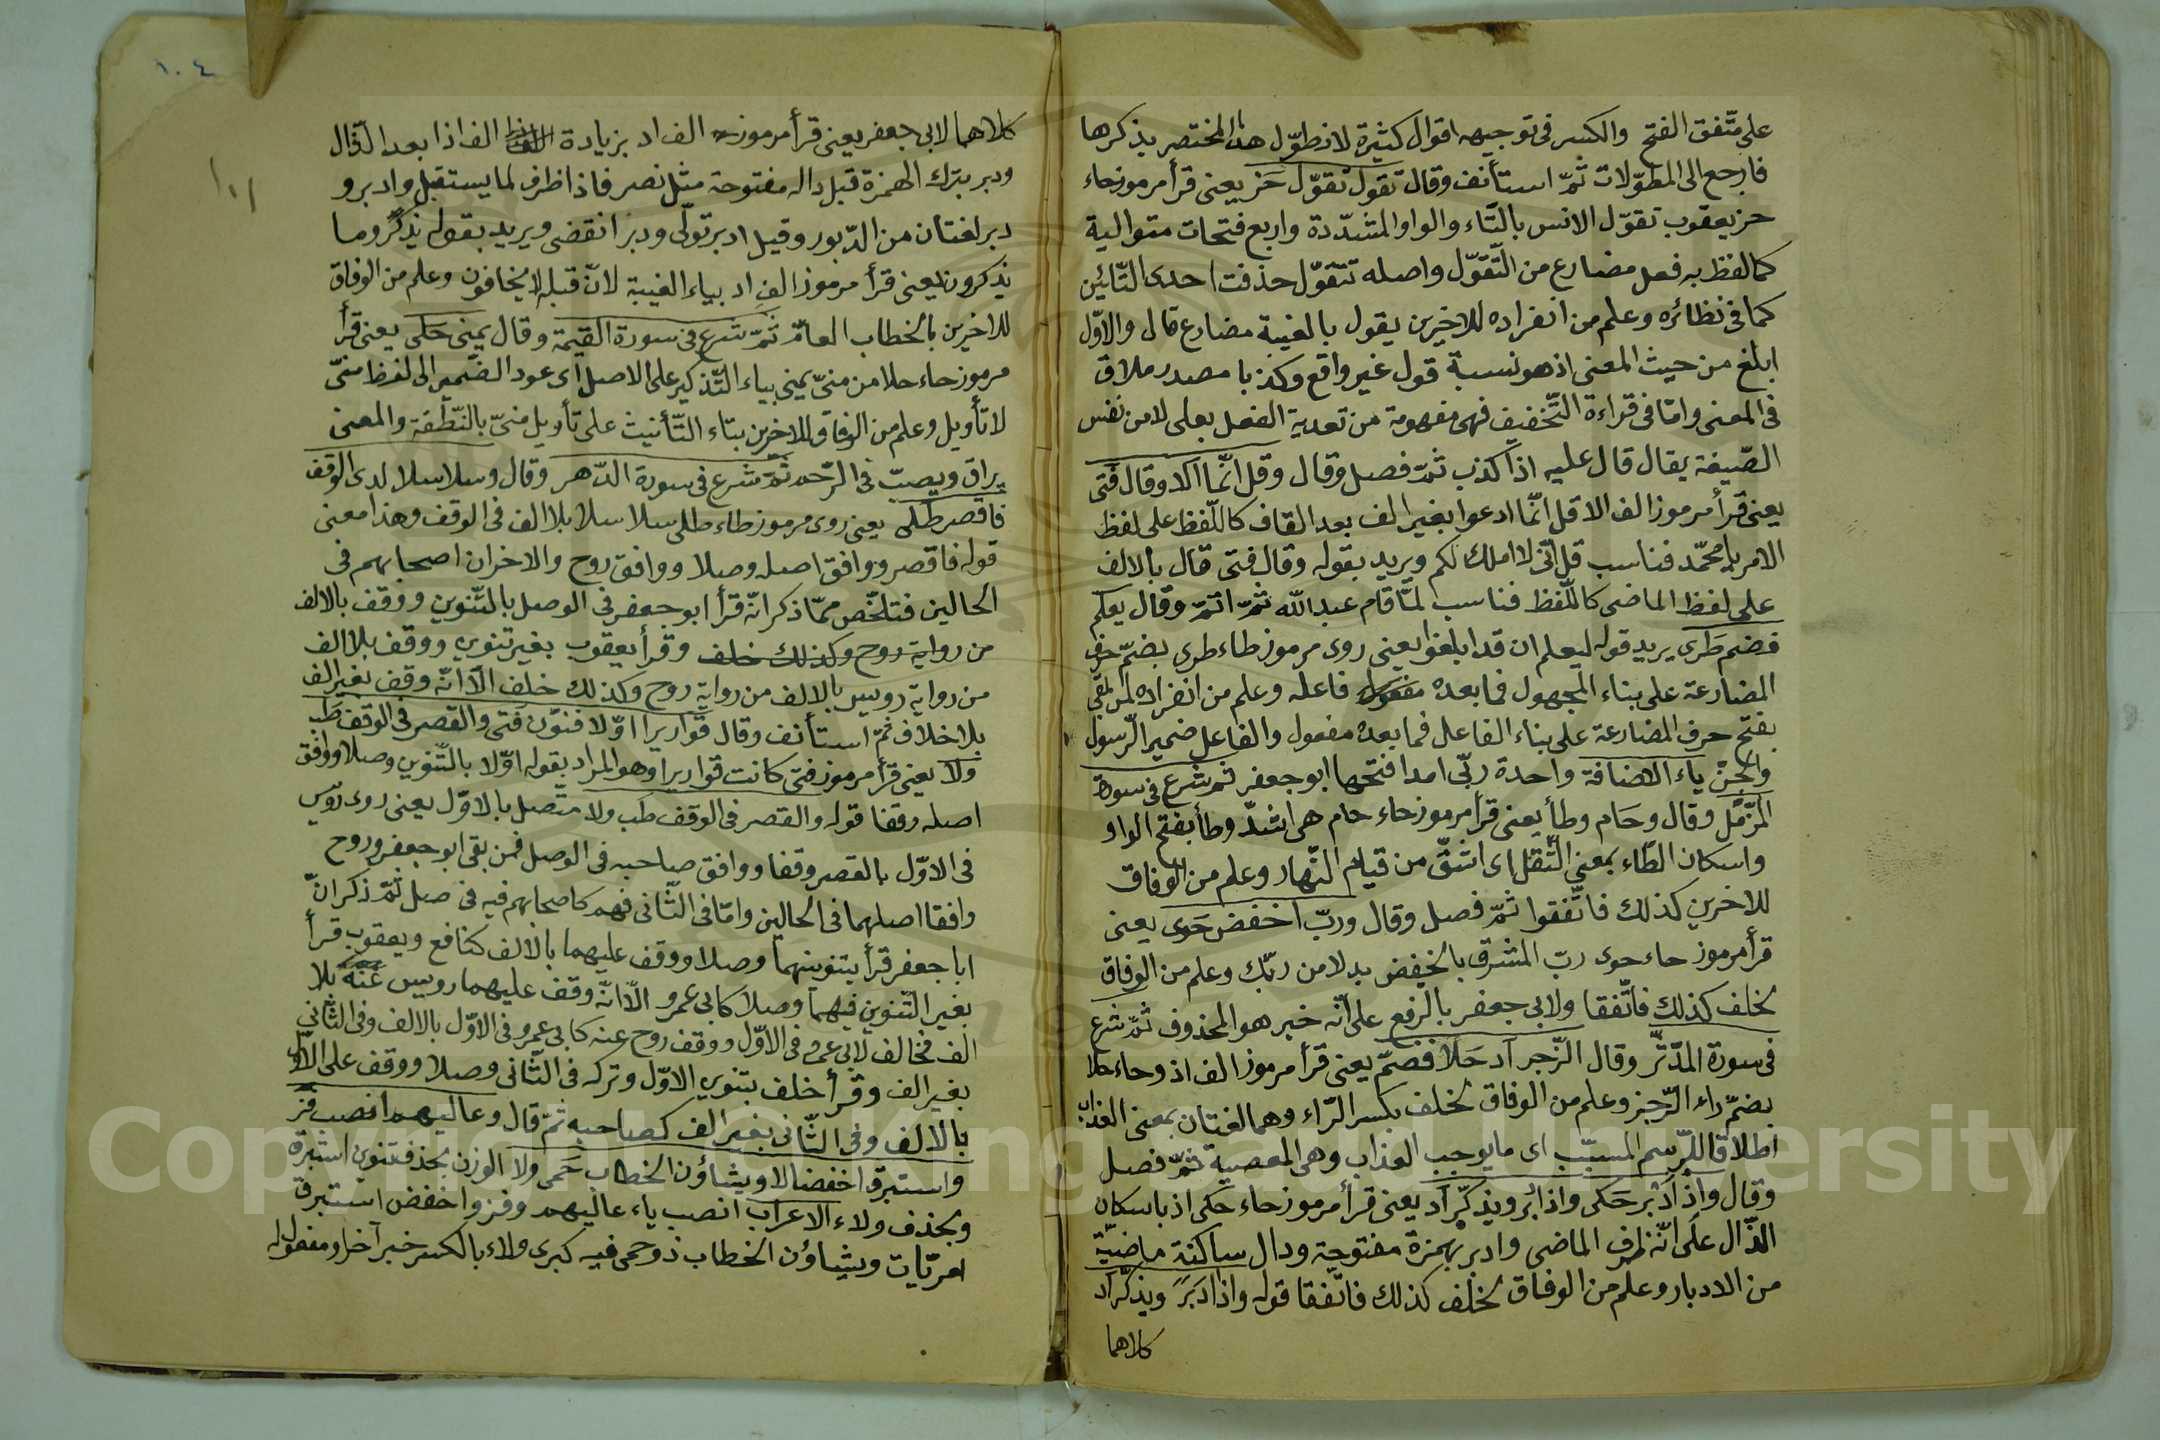 على متّفق الفتح والكسر فى توجيهه اقوال كثيرة لا نطوّل هذا المختصر بذكرها
فارجع الى المطوّلات ثمّ استأنف وقال تقول تقوّل حز يعنى قرأ مرموز حاء
حز يعقوب تقوّل الانس بالتّاء والواو المشدّدة واربع فتحات متوالية
كما لفظ به فعل مضارع من التّقوّل واصله تتقوّل حذفت احدى التّائين
كما فى نظائره وعلم من انفراده للاخرين يقول بالغيبة مضارع قال والاوّل
ابلغ من حيث المعنى اذ هو نسبة قول غير واقع وكذبا مصدر ملاق
فى المعنى وامّا فى قراءة التّخفيف فهى مفهومة من تعدية الفعل بعلى لا من نفس
الصّيغة يقال قال عليه اذا كذب ثمّ فصل وقال وقل انّما الا وقال فتى
يعنى قرأ مرموز الف الا قل انّما ادعوا بغير الف بعد القاف كاللّفظ على لفظ
الامر يا محمّد فناسب قل انّى لا املك لكم ويريد بقوله وقال فتى قال بالالف
على لفظ الماضى كاللّفظ فناسب لمّا قام عبد الله ثمّ اتمّ وقال يعلم
فضم طرى يريد قوله ليعلم ان قد ابلغوا يعنى روى مرموز طاء طرى بضمّ حرف
المضارعة على بناء المجهول فما بعده فاعله وعلم من انفراده لمن بقى
بفتح حرف المضارعة على بناء الفاعل فما بعده مفعول والفاعل ضمير الرّسول
والجنّ ياء الاضافة واحدة ربّى امدا فتحها ابو جعفر ثم شرع فى سورة
المزّمّل وقال وحام وطأ يعنى قرأ مرموز حاء حام هى اشدّ وطأ بفتح الواو
واسكان الطّاء بمعنى الثّقل اى اشقّ من قيام النّهار وعلم من الوفاق
للاخرين كذلك فاتّفقوا ثمّ فصل وقال وربّ اخفض حوى يعنى
قرأ مرموز حاء حوى ربّ المشرق بالخفض بدلا من ربّك وعلم من الوفاق
لخلف كذلك فاتّفقا ولابى جعفر بالرفع على انّه خبر هو المحذوف ثمّ شرع
فى سورة المدّثّر وقال الرّجز اد حلا فضمّ يعنى قرأ مرموز الف اد وحاء حلا
بضمّ راء الرّجز وعلم من الوفاق لخلف بكسر الرّاء وهما لغتان بمعنى العذاب
اطلاقا للرّسم المسبّب اى ما يوجب العذاب وهى المعصية ثمّ فصل
وقال واذ ادبر حكى واذا دبر ويذكّر اد يعنى قرأ مرموز حاء حكى اذ باسكان
الذّال على انّه ظرف الماضى وادبر بهمزة مفتوحة ودال ساكنة ماضيّة
من الادبار وعلم من الوفاق لخلف كذلك فاتّفقا قوله واذا دبر ويذكّر اد
كلاهما
١٠٤
١٠١
كلاهما لابى جعفر يعنى قرأ مرموز الف اد بزيادة الف اذا بعد الذّال
ودبر بترك الهمزة قبل داله مفتوحة مثل نصر فاذا ظرف لما يستقبل وادبر و
دبر لغتان من الدّبور وقيل ادبر تولّى ودبر انقضى ويريد بقوله يذكّر وما
يذكرون يعنى قرأ مرموز الف اد بياء الغيبة لانّ قبله لا يخافون وعلم من الوفاق
للاخرين بالخطاب العامّ ثمّ شرع فى سورة القيمة وقال يمنى حلى يعنى قرأ
مرموز حاء حلا من منىّ يمنى بياء التّذكير على الاصل اى عود الضّمير الى لفظ منىّ
لا تأويل وعلم من الوفاق للاخرين بتاء التّأنيث على تأويل منىّ بالنّطفة والمعنى
يراق ويصبّ فى الرّحم ثمّ شرع فى سورة الدّهر وقال وسلاسلا لدى الوقف
فاقصر طلى يعنى روى مرموز طاء طلى سلاسلا بلا الف فى الوقف وهذا معنى
قوله فاقصر ووافق اصله وصلا ووافق روح والاخران اصحابهم فى
الحالين فتلخّص ممّا ذكر انّه قرأ ابو جعفر فى الوصل بالتّنوين ووقف بالالف
من رواية روح وكذلك خلف وقرأ يعقوب بغير تنوين ووقف بلا الف
من رواية رويس بالالف من رواية روح وكذلك خلف الّا انّه وقف بغير الف
بلا خلاف ثمّ استأنف وقال قواريرا اوّلا فنوّن فتى والقصر فى الوقف طب
ولا يعنى قرأ مرموز فتى كانت قواريرا وهو المراد بقوله اوّلا بالتّنوين وصلا ووافق
اصله وقفا قوله والقصر فى الوقف طب ولا متّصل بالاوّل يعنى روى رويس
فى الاوّل بالقصر وقفا ووافق صاحبه فى الوصل فمن بقى ابو جعفر وروح
وافقا اصلهما فى الحالين وامّا فى الثّانى فهم كاصحابهم فيه فى صل ثمّ ذكر انّ
ابا جعفر قرأ بتنوينهما وصلا ووقف عليهما بالالف كنافع ويعقوب قرأ
بغير التّنوين فيهما وصلا كابى عمرو الّا انّه وقف عليهما رويس عنه بلا
الف فخالف لابى عمرو فى الاوّل ووقف روح عنه كابى عمرو فى الاوّل بالالف وفى الثّانى
بغير الف وقرأ خلف بتنوين الاوّل وتركه فى الثّانى وصلا ووقف على الاوّل
بالالف وفى الثّانى بغير الف كصاحبه ثمّ قال وعاليهم انصب فز
واستبرق اخفضا الا ويشاؤن الخطاب حمى ولا الوزن بحذف تنوين استبرق
وبحذف ولاء الاعراب انصب ياء عاليهم وفز واخفض استبرق
ويشاؤن الخطاب ذو حمى فيه كبرى ولاء بالكسر خبر آخر او مفعول له
Copyright © King Saud University